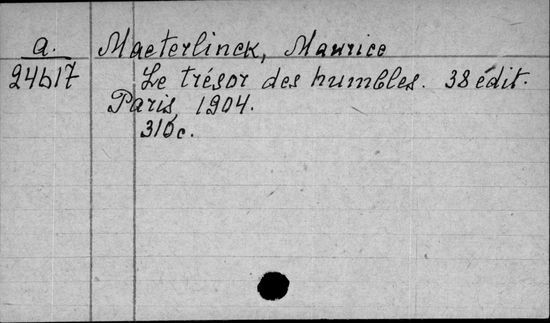 a. Maeterlinck, Maurice
24617 Le trésor des humbles. 38 édit.
Paris, 1904.
310c.